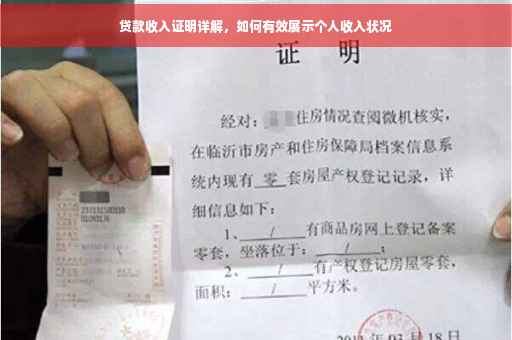 贷款收入证明详解，如何有效展示个人收入状况
证 明
经对：住房情况查阅微机核实，
在临沂市房产和住房保障局档案信息系
统内现有 零 套房屋产权登记记录，详
细信息如下：
1、 / 有商品房网上登记备案
零套，坐落位于： / ；
2、 / 有产权登记房屋零套，
面积： / 平方米。
03月18日